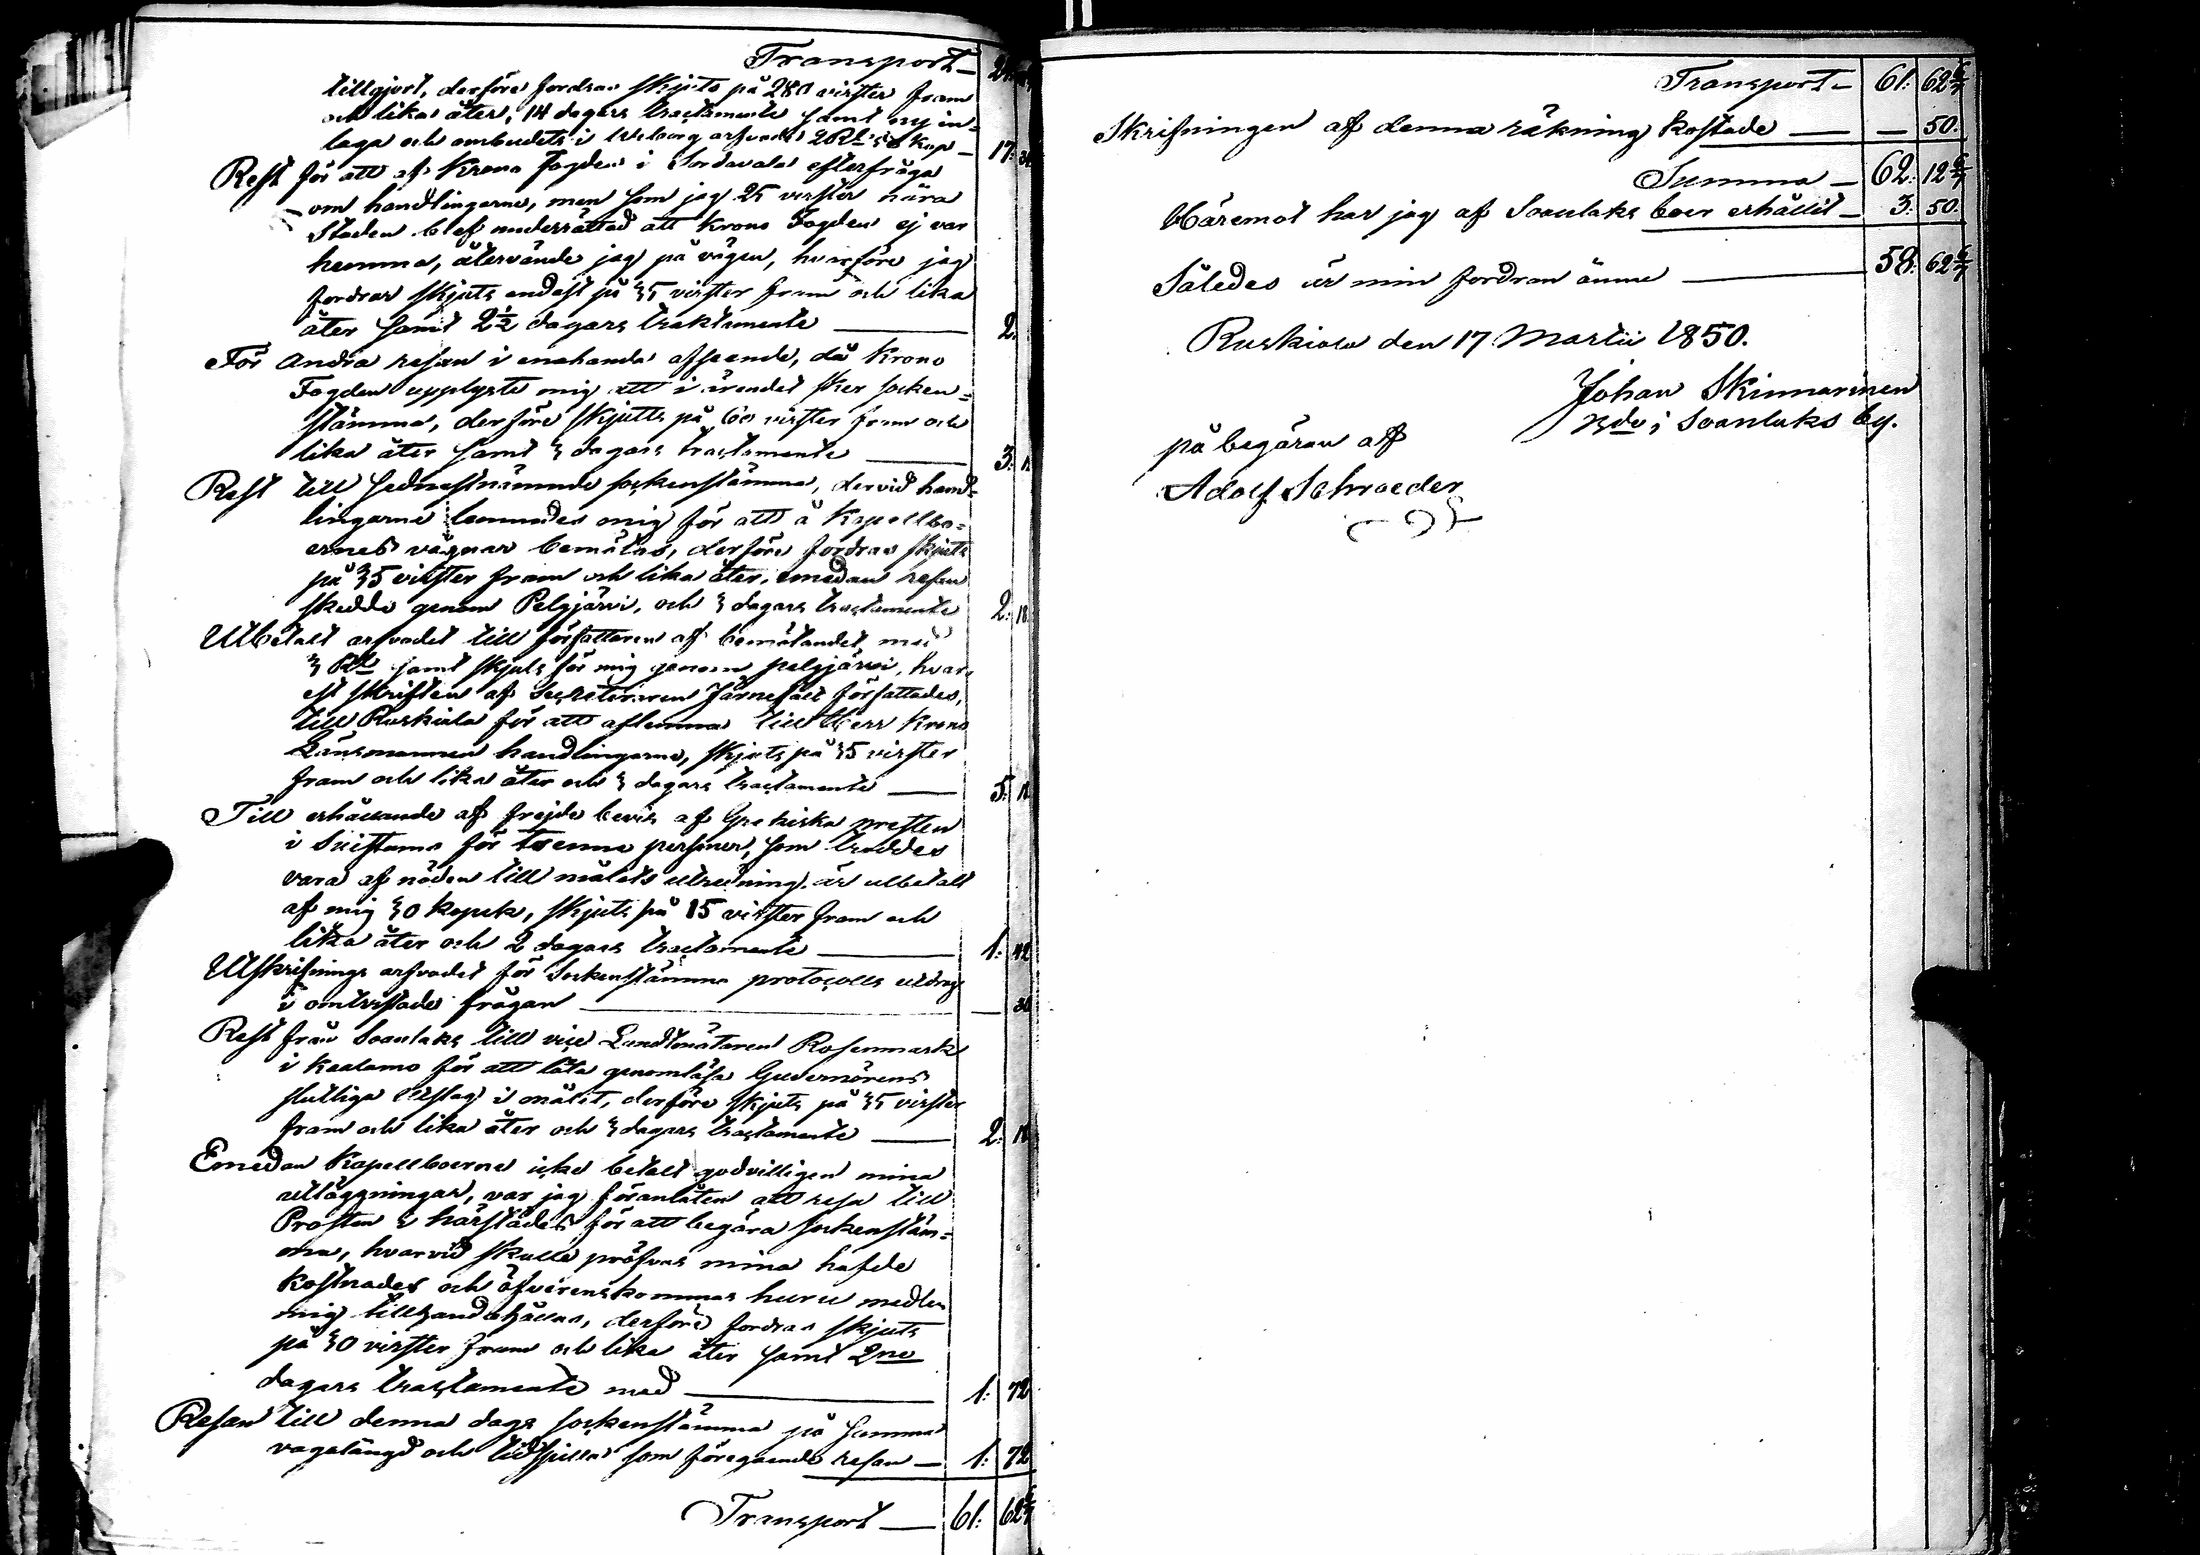 Transport —
tillgjort, derföre fordras skjuts på 280 virster fram
och lika åter, 14 dagars tractamente samt ny in=
laga och ombudets i Wiborg arfvode 2 Rbl 50 kop — 17:
Rest för att af Krono Fogden i Sordavala efterfråga
om handlingarne, men som jag 25 virster nära
Staden blef underrättad att Krono Fogden ej var
hemma, återvände jag på vägen, hvarföre jag
fordrar skjuts endast på 35 virster fram och lika
åter samt 2½ dagars traktamente — 2.
För andra resan i enahanda afseende, då Krono
Fogden upplyste mig att i ärendet sker socken=
stämma, derföre skjutts på 60 virster fram och
lika åter samt 3 dagars tractamente — 3:
Rest till sednastnämnde sockenstämma, dervid hand=
lingarne lemnades mig för att å Kapellbo=
ernes vägnar bemötas, derföre fordras skjuts
på 35 virster fram och lika åter, emedan resan
skedde genom Pelgjärvi, och 3 dagars tractamente 2: 18
Utbetalt arfvodet till författaren af bemötandet med
3 Rbl samt skjuts för mig genom pelgjärvi, hvar=
est skriften af Secreteraren Järnefält författades,
till Ruskiala för att aflemna till Herr Krono
Länsmannen handlingarne, skjuts på 35 virster
fram och lika åter och 3 dagars tractamente — 5: 18
Till erhållande af frejde bevis af Grekiska presten
i Suistamo för tvenne personer, som troddes
vara af nöden till målets utredning, är utbetalt
af mig 30 kopek, skjuts på 15 virster fram och
lika åter och 2 dagars tractamente — 1: 42
Utskrifnings arfvodet för Sockenstämmo protocolls utdrag
i omtvistade frågan —
Rest från Soanlaks till vice Landtmätaren Rosenmark
i Kaalamo för att låta genomläsa Guvernörens
slutliga Utslag i målet, derföre skjuts på 35 virster
fram och lika åter och 3 dagars tractamente — 2: 18
Emedan Kapellboerne icke betalt godvilligen mina
utläggningar, var jag föranlåten att resa till
Prosten härstädes för att begära sockenstäm=
ma, hvarvid skulle pröfvas mina hafde
kostnader och öfverenskommas huru medlen
mig tillhandahållas, derföre fordras skjuts
på 30 virster fram och lika åter samt 2ne
dagars tractamente med — 1: 72
Resan till denna dags sockenstämma på samma
vägalängd och tidspillan som föregående resan — 1: 72
Transport — 61: 62 6/7
Transport — 61: 62 6/7
Skrifningen af denna räkning kostade — — 50.
Summa — 62: 12 6/7
Häremot har jag af Soanlaks boer erhållit — 3: 50.
Således är min fordran ännu — 58: 62 6/7
Ruskiala den 17 Martii 1850.
Johan Skinnarinen
i Soanlaks by.
på begäran af
Adolf Schroeder